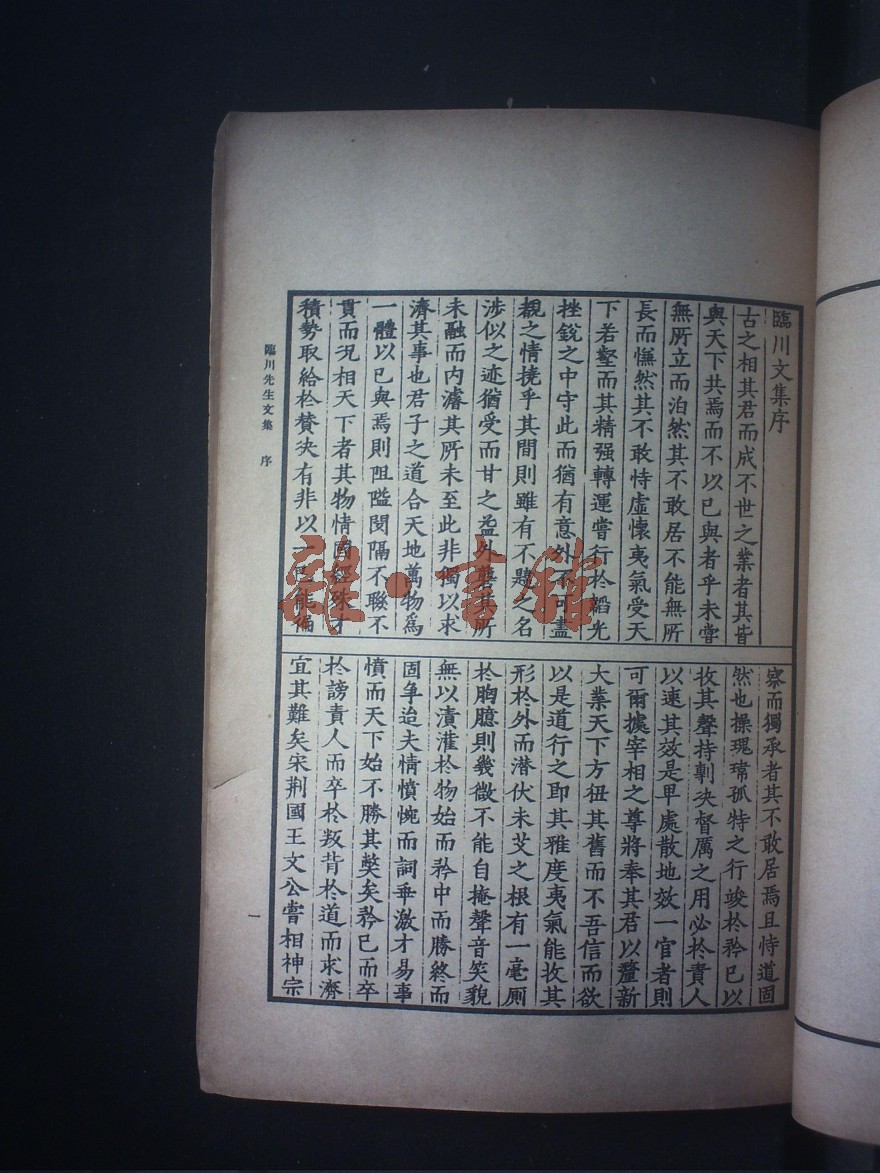 臨川文集序
古之相其君而成不世之業者其皆
與天下共焉而不以已與者乎未嘗
無所立而泊然其不敢居不能無所
長而憮然其不敢恃虛懷夷氣受天
下若壑而其精强轉運嘗行於韜光
挫銳之中守此而猶有意外不可盡
覩之情撓乎其間則雖有不韙之名
涉似之迹猶受而甘之盈外襲其所
未融而内濬其所未至此非獨以求
濟其事也君子之道合天地萬物爲
一體以已與焉則阻隘閡隔不聯不
貫而况相天下者其物情國經殊才
積勢取給於贊决有非以一已能徧
察而獨承者其不敢居焉且恃道固
然也操瑰琦孤特之行竣於矜已以
收其聲持剸决督厲之用必於責人
以速其效是甲處散地效一官者則
可爾據宰相之尊將奉其君以釐新
大業天下方狃其舊而不吾信而欲
以是道行之即其雅度夷氣能收其
形於外而潜伏未艾之根有一毫厠
於胸臆則幾微不能自掩聲音笑貌
無以漬灌於物始而矜中而勝終而
固争迨夫情憤惋而詞垂激才易事
憤而天下始不勝其獘矣矜已而卒
於謗責人而卒於叛背於道而求濟
宜其難矣宋荆國王文公嘗相神宗
臨川先生文集 序
一
雜·書館